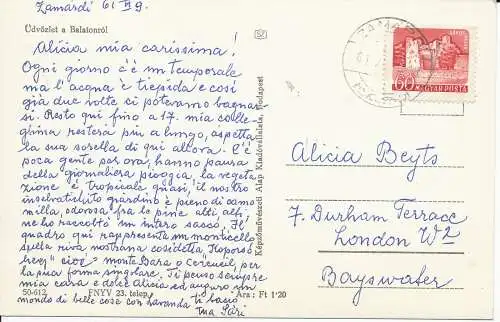 Zamárdi 61 VI 9.
Üdvözlet a Balatonról
Alicia mia carissima!
Ogni giorno c'è un temporale
ma l'acqua è tiepida e così
già due volte ci potevamo bagnar
si. Resto qui fino a 17. mia colle
ghina resterà più a lungo, aspetta
la sua sorella di qui allora. C'è
poca gente per ora, hanno paura
della giornaliera pioggia, la vegeta
zione è tropicale quasi, il nostro
inselvatichito giardino è pieno di camo
milla, odorosa fra le pine alti, alti,
ne ho raccolto un intero sacco, Il
quadro qui rappresenta un monticello
sulla riva nostrana cosidetta "Koporsó
hegy" cioè monte Bara o Cercueil, per
la sua forma singolare. Ti penso sempre
mia cara e dolce Alicia ed auguro un
mondo di belle cose con lavanda ti bacio
tua Sári
50-612
FNYV 23. telep.
Ára: Ft 1'20
Képzőművészeti Alap Kiadóvállalata, Budapest
60
MAGYAR POSTA
Alicia Beyts
7. Durham Terrace
London W2
Bayswater